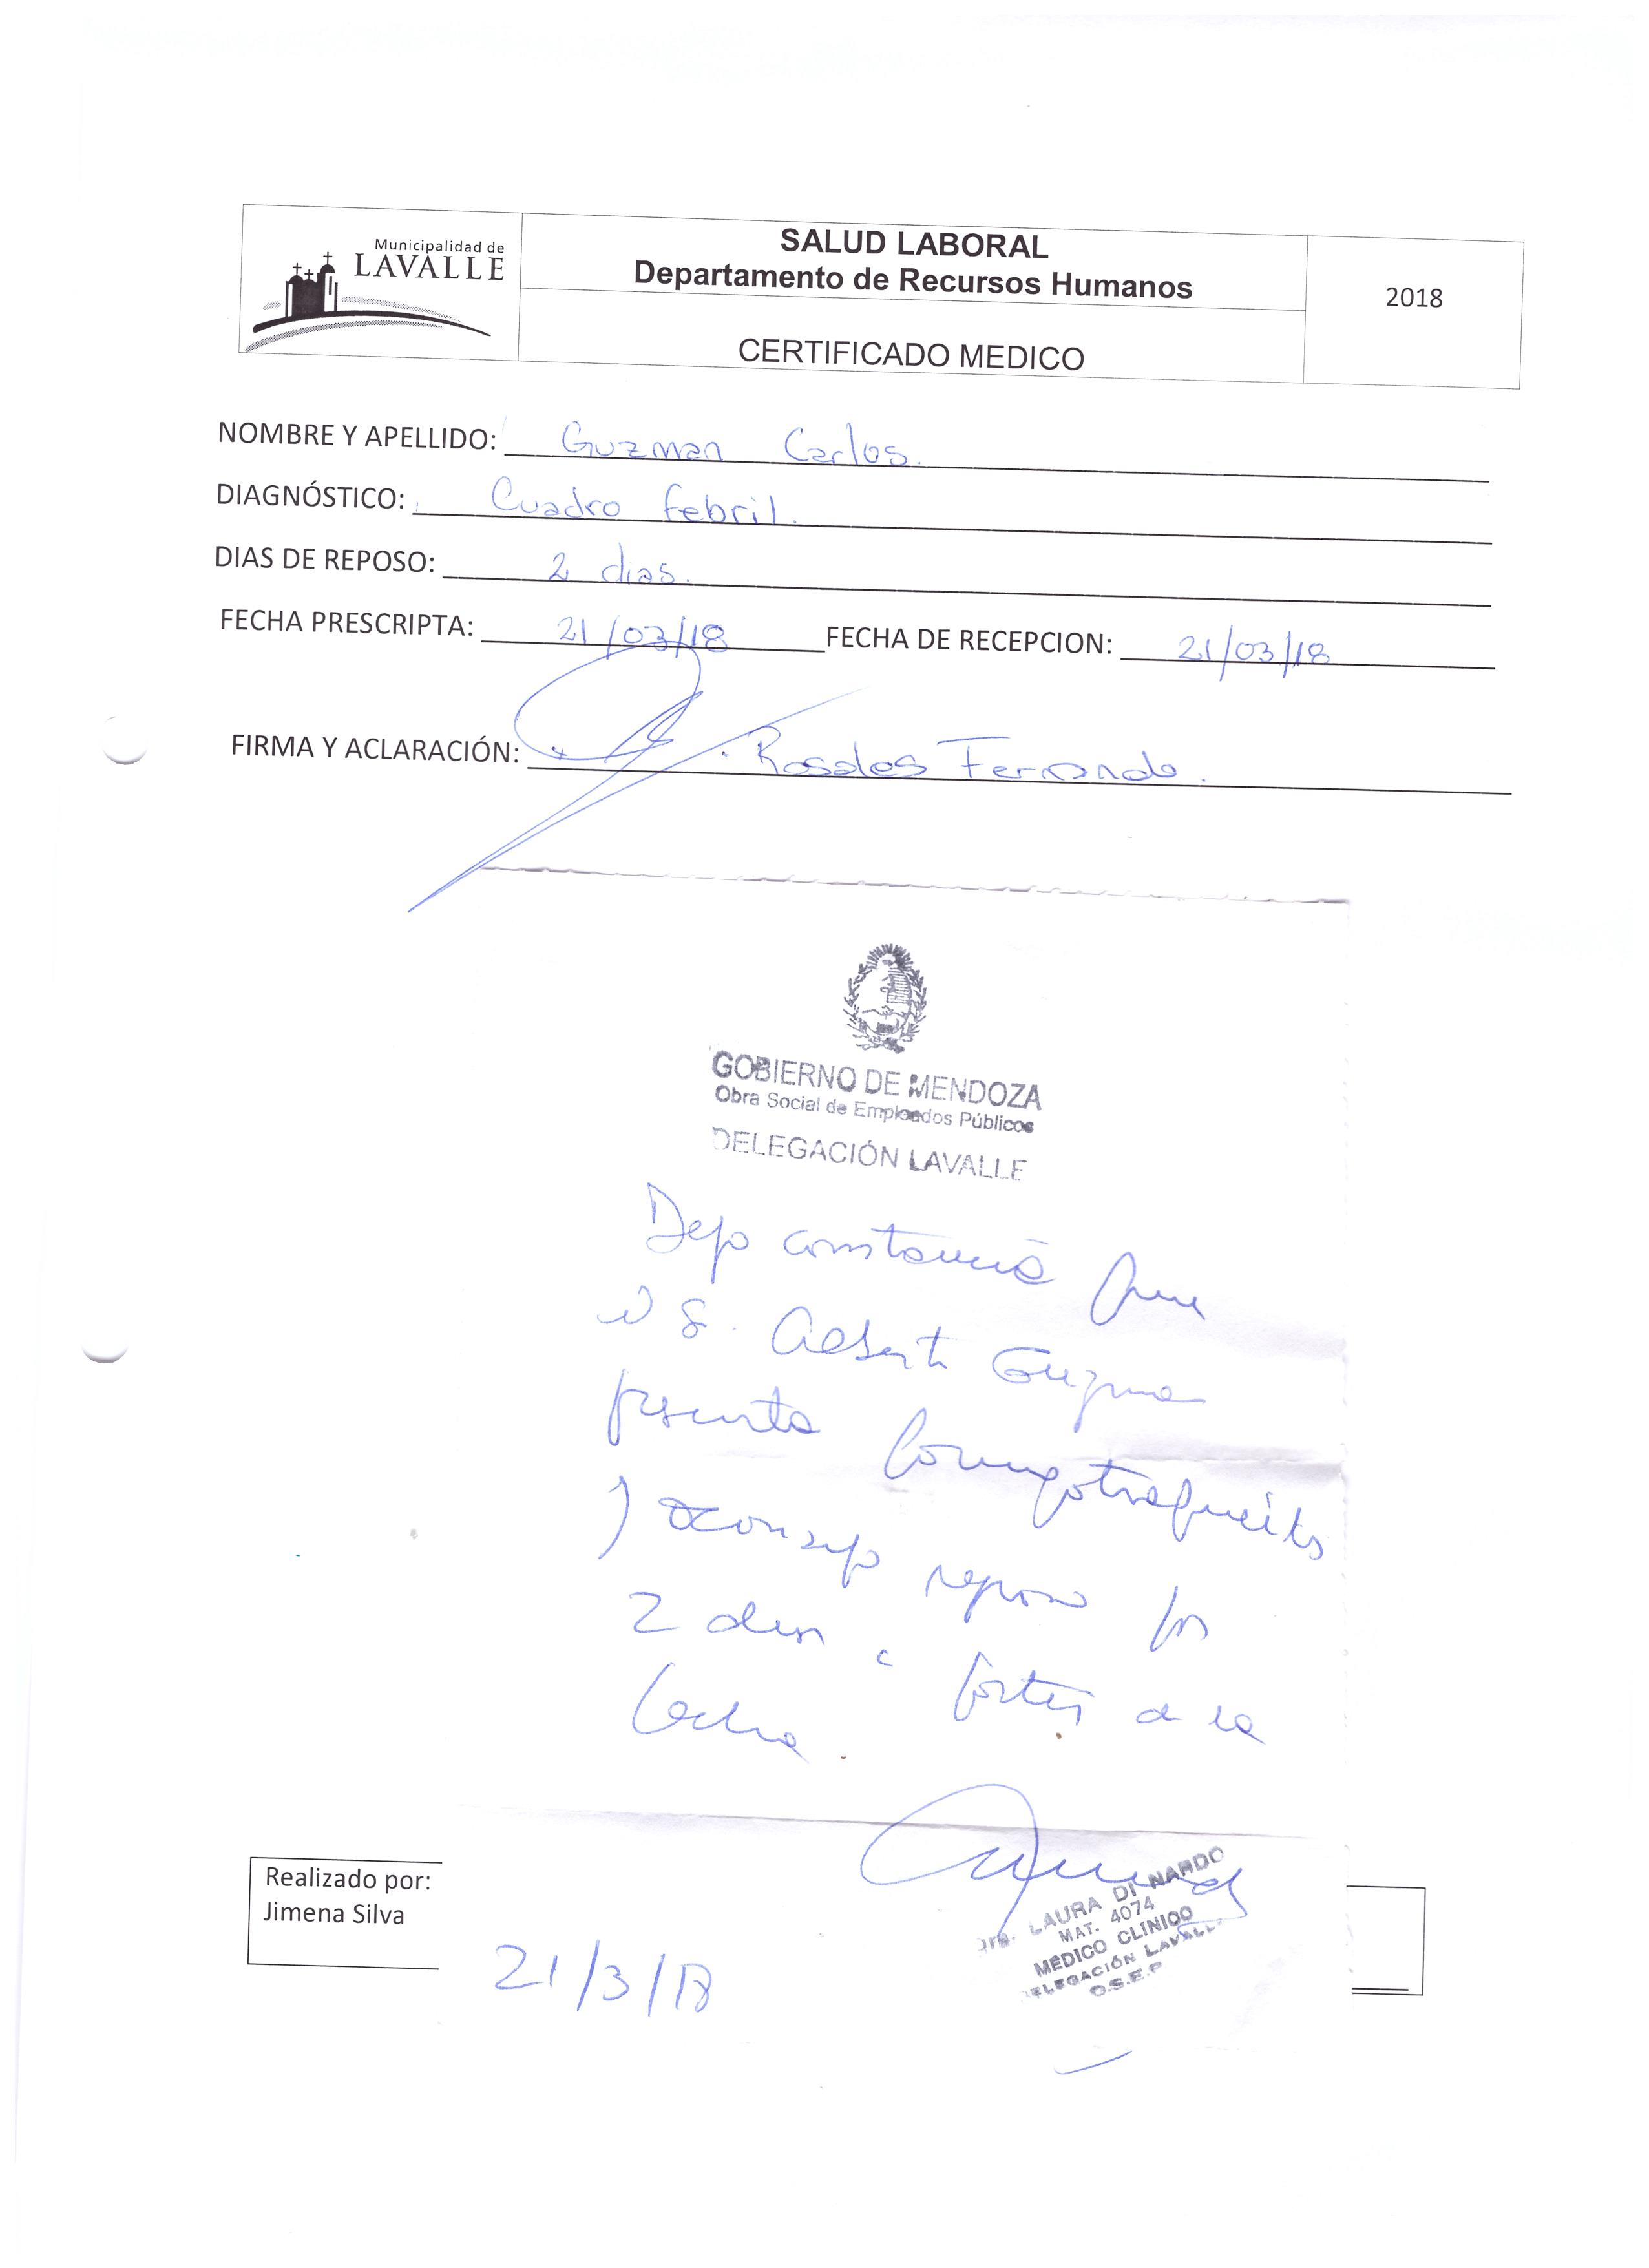 Municipalidad de
LAVALLE
SALUD LABORAL
Departamento de Recursos Humanos
CERTIFICADO MEDICO
2018
NOMBRE Y APELLIDO: Guzman Carlos.
DIAGNÓSTICO: Cuadro febril.
DIAS DE REPOSO: 2 dias.
FECHA PRESCRIPTA: 21/03/18 FECHA DE RECEPCION: 21/03/18
FIRMA Y ACLARACIÓN: Rosales Fernando.
GOBIERNO DE MENDOZA
Obra Social de Empleados Públicos
DELEGACIÓN LAVALLE
Dejo constancia que
Guzman
presenta
y aconsejo reposo por
2 dias a partir de la
fecha.
Dra. LAURA DI NARDO
MAT. 4074
MEDICO CLINICO
DELEGACIÓN LAVALLE
O.S.E.P
Realizado por:
Jimena Silva
21/3/18